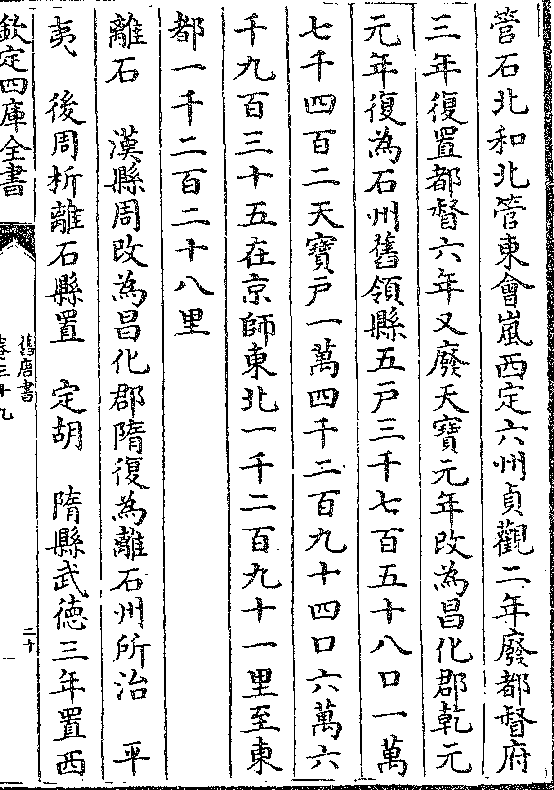 管石北和北管東會嵐西定六州貞觀二年廢都督府
三年復置都督六年又廢天寶元年改為昌化郡乾元
元年復為石州舊領縣五戸三千七百五十八口一萬
七千四百二天寶戸一萬四千二百九十四口六萬六
千九百三十五在京師東北一千二百九十一里至東
都一千二百二十八里
離石　漢縣周改為昌化郡隋復為離石州所治　平
夷　後周析離石縣置　定胡　隋縣武德三年置西
欽定四庫全書
舊唐書
卷三十九
二十